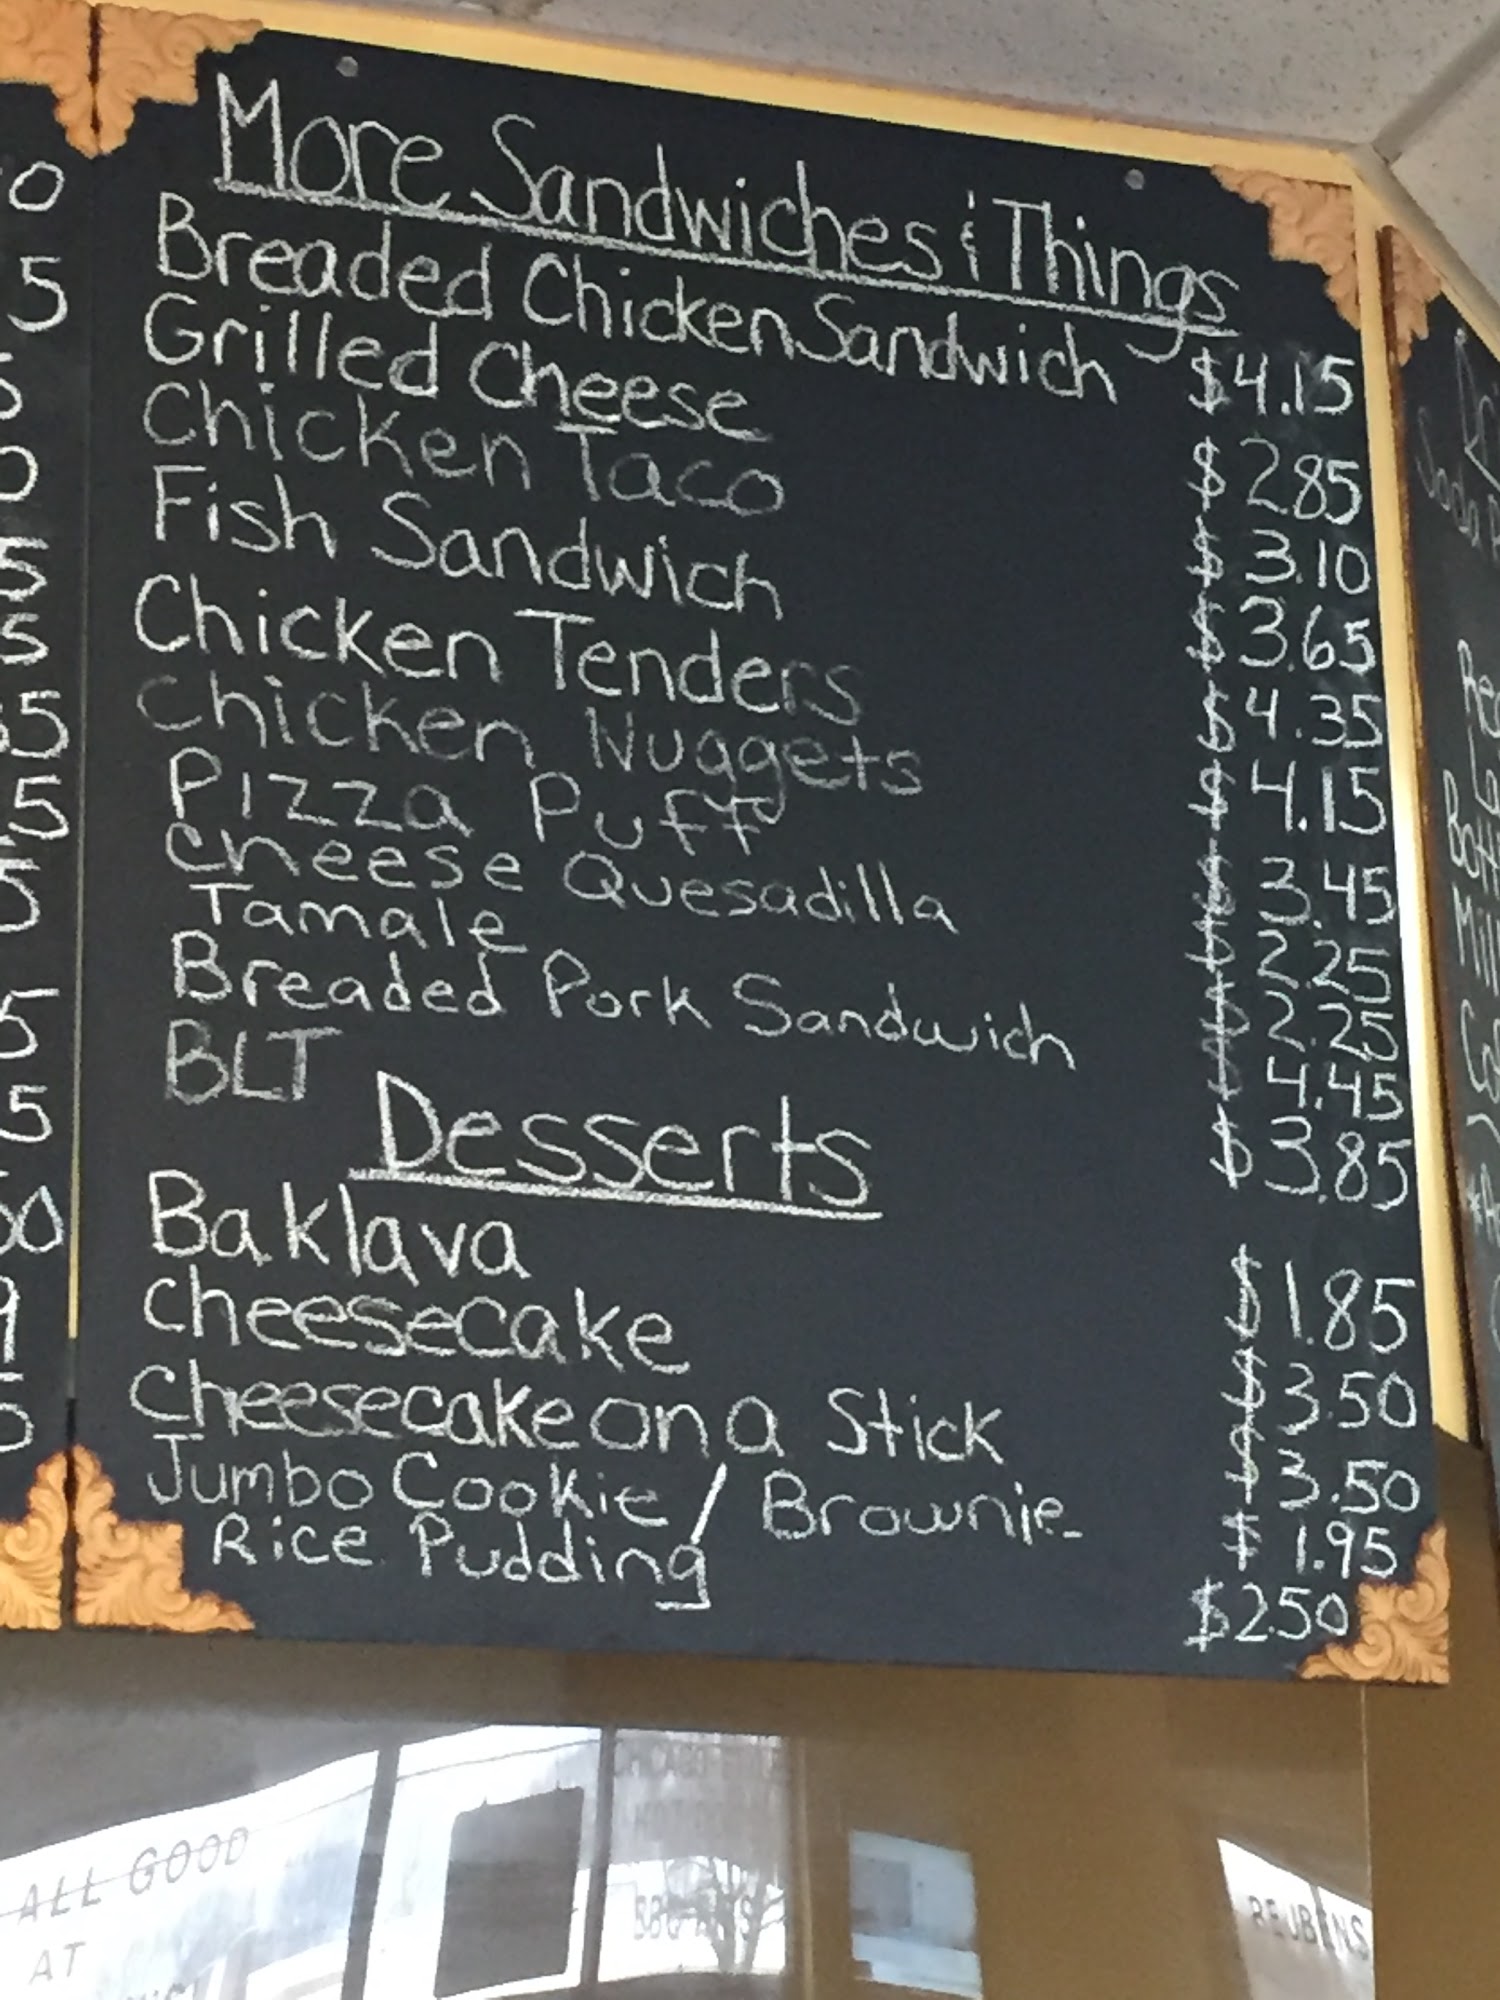 More Sandwiches & Things
Breaded Chicken Sandwich $4.15
Grilled Cheese $2.85
Chicken Taco $3.10
Fish Sandwich $3.65
Chicken Tenders $4.35
Chicken Nuggets $4.15
Pizza Puff $3.45
Cheese Quesadilla $2.25
Tamale $2.25
Breaded Pork Sandwich $4.45
BLT $3.85
Desserts
Baklava $1.85
Cheesecake $3.50
Cheesecake on a Stick $3.50
Jumbo Cookie / Brownie $1.95
Rice Pudding $2.50
ALL GOOD
AT
REUBENS